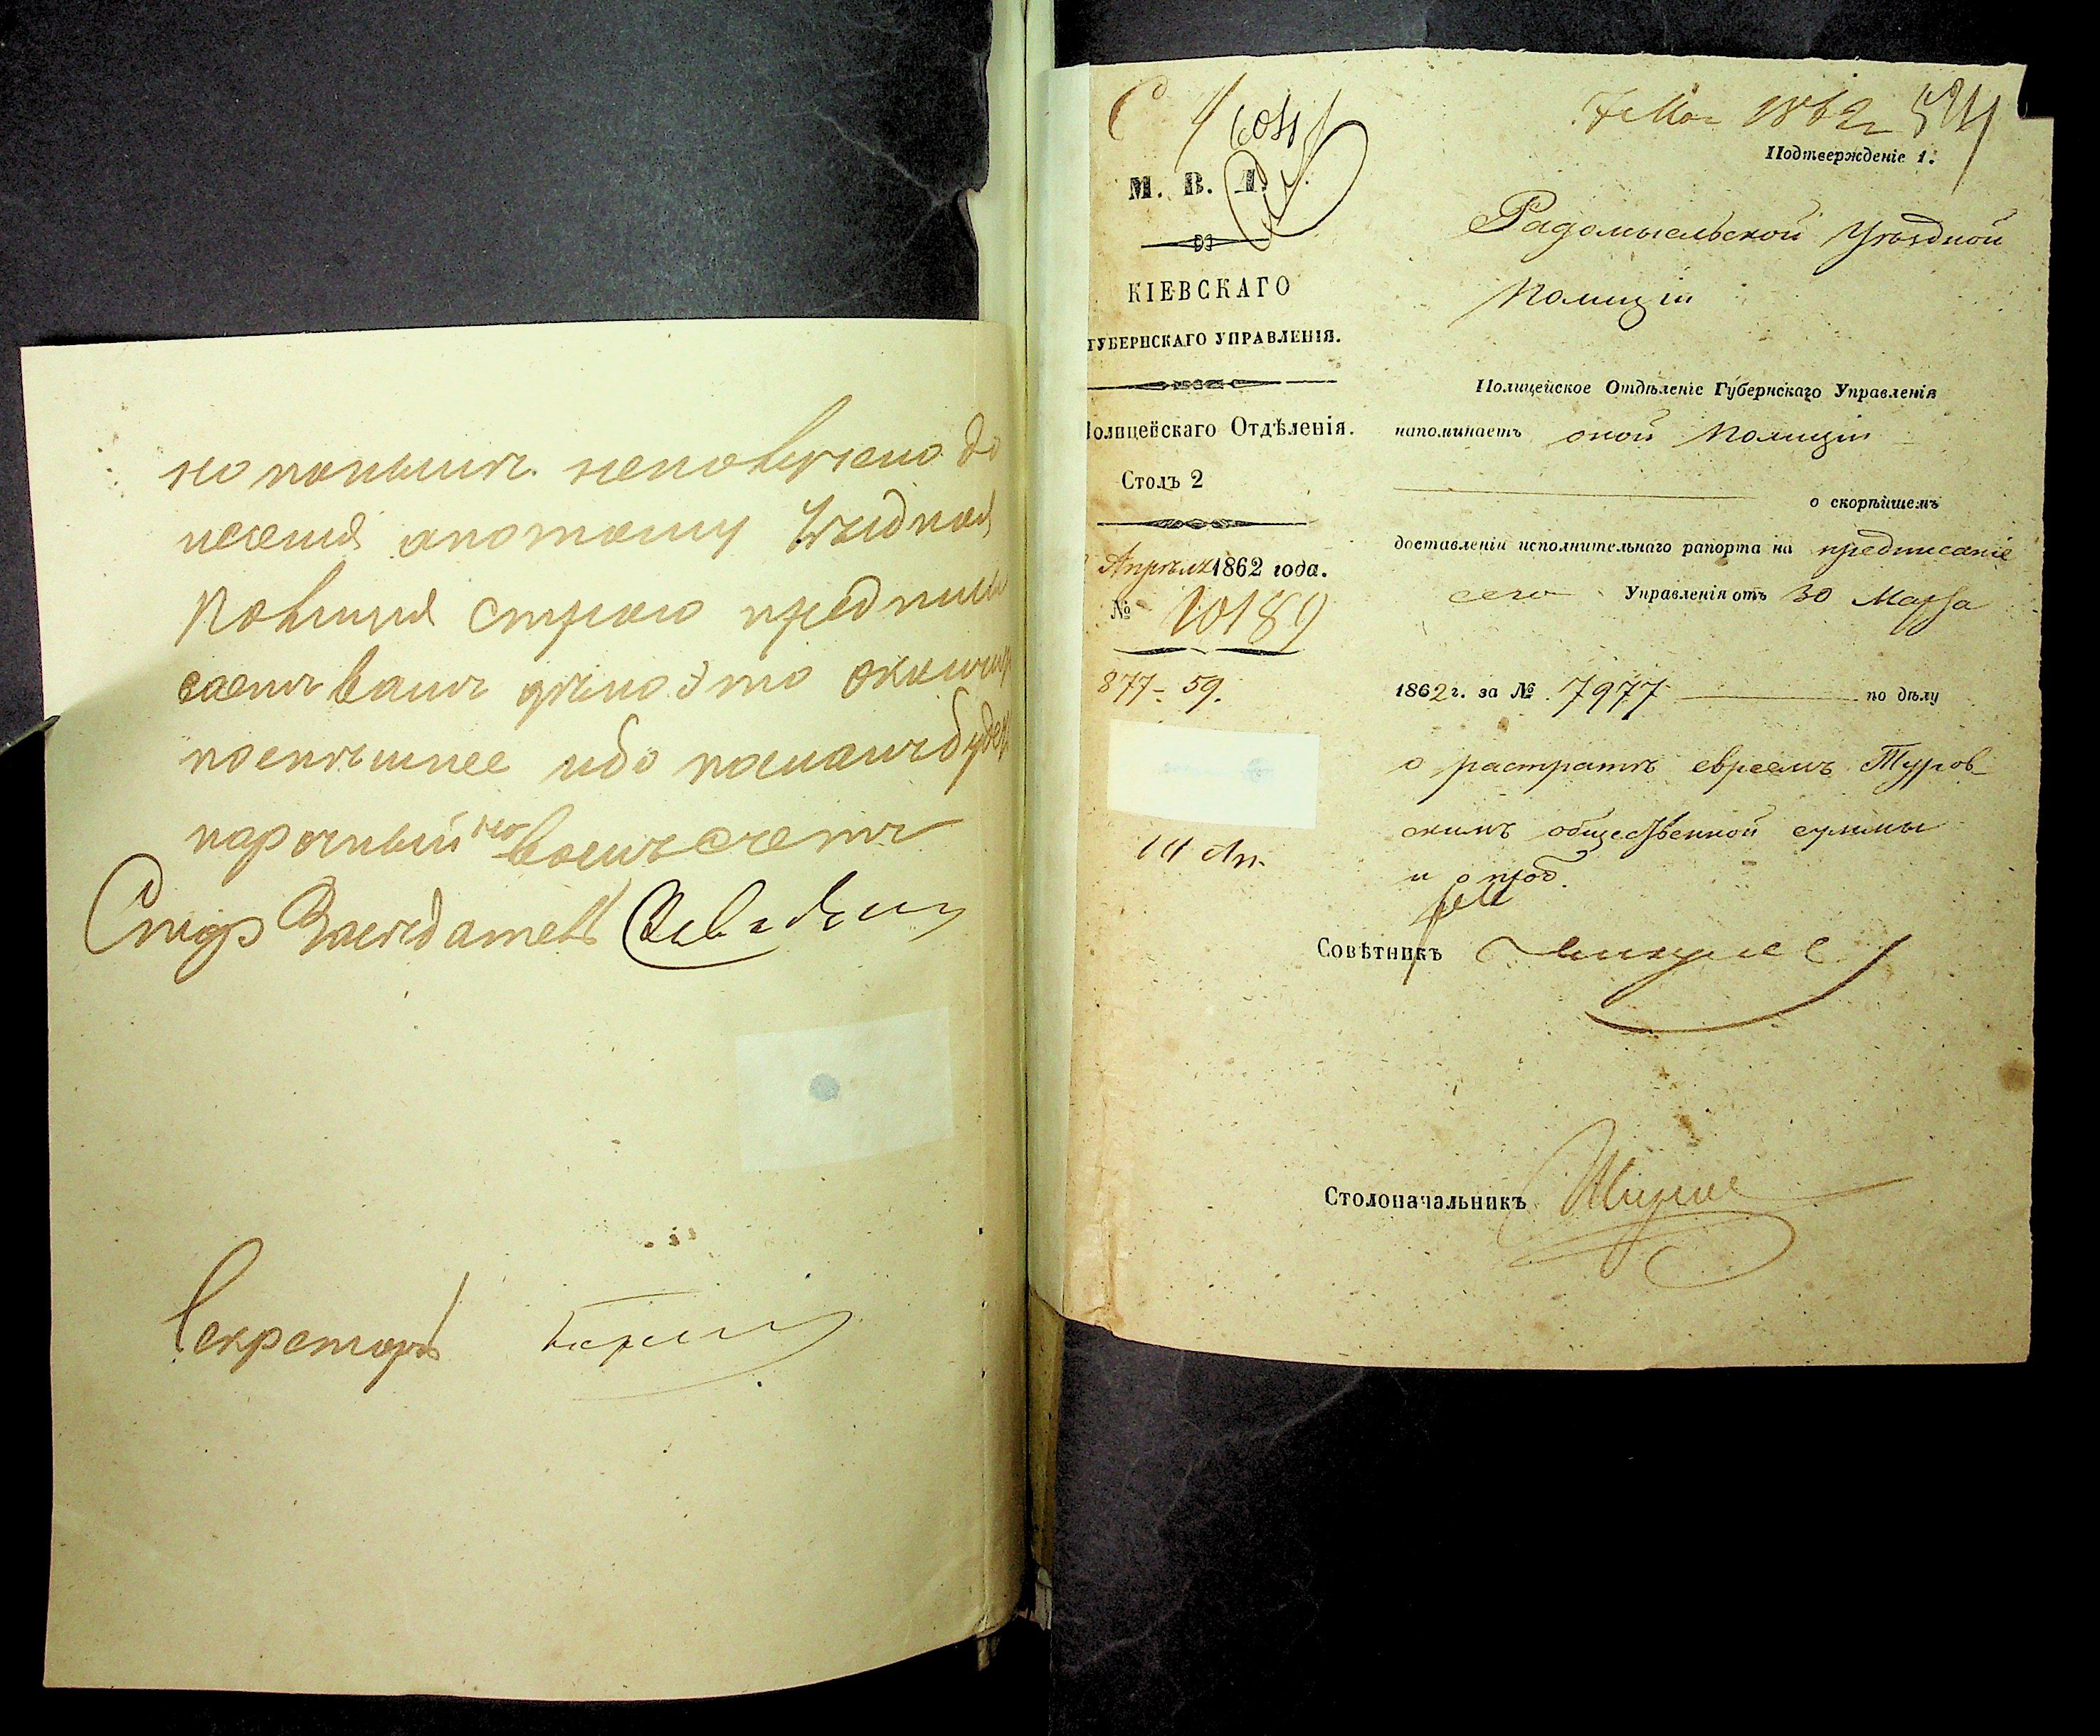 но поныне неполучено до
несения апотому Уѣздная
Полиция строго предпи
саетъ вамъ дѣло это оконч
поспѣшнее ибо посланъ будет
нарочный на вашъ счетъ
Старш Засѣдатель
Секретарь
7 Мая 1862 г 524
Подтвержденіе 1.
М. В. Д.
КІЕВСКАГО
ГУБЕРНСКАГО УПРАВЛЕНІЯ.
Полицейскаго Отдѣленія.
Столъ 2
Апрѣля 1862 года.
№ 10189
877-59.
14 Ап.
Радомысльской Уѣздной
Полиціи
Полицейское Отдѣленіе Губернскаго Управленія
напоминаетъ оной Полиціи
о скорѣйшемъ
доставленіи исполнительнаго рапорта на предписаніе
сего Управленія отъ 30 Марта
1862 г. за № 7977 по дѣлу
о растратѣ евреемъ Туров
скимъ общественной суммы
и о проч.
Совѣтникъ
Столоначальникъ